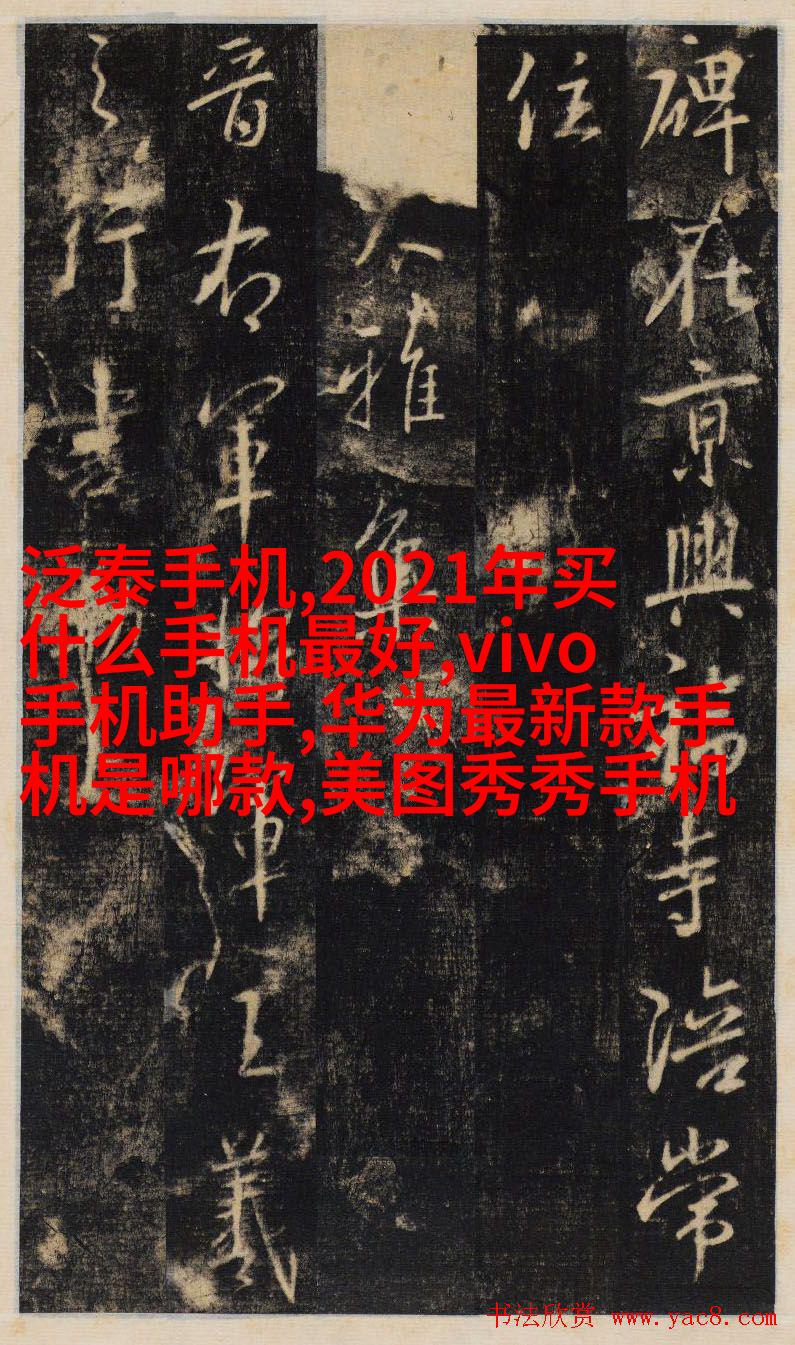 碑在京興福寺陪常
住
大雅集
晋右軍將軍王羲
之行書
泛泰手机,2021年买
什么手机最好,vivo
手机助手,华为最新款手
机是哪款,美图秀秀手机
书法欣赏 www.yac8.com